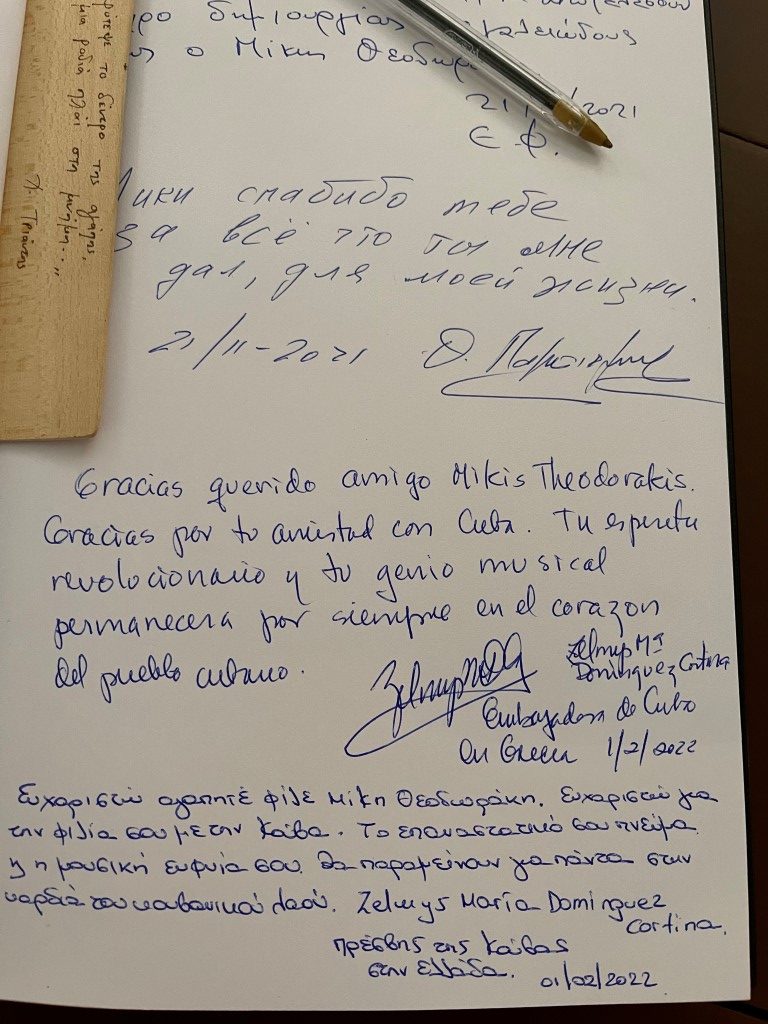 δημιουργίας
ο Μίκης Θεοδωρ
21/ /2021
Ε Φ.
φύτεψε το δεντρο της αγάπης,
μια ροδιά πλάι στη μνήμη..."
Мики спасибо тебе
за всё что ты мне
дал, для моей жизни.
21/11-2021
Gracias querido amigo Mikis Theodorakis.
Gracias por tu amistad con Cuba. Tu espiritu
revolucionario y tu genio musical
permanecera por siempre en el corazon
del pueblo cubano.
Zelmys Mª
Dominguez Cortina
Embajadora de Cuba
en Grecia 1/2/2022
Ευχαριστώ αγαπητέ φίλε Μίκη Θεοδωράκη. Ευχαριστώ για
την φιλία σου με την Κούβα. Το επαναστατικό σου πνεύμα
κ η μουσική ευφυία σου θα παραμείνουν για πάντα στην
καρδιά του κουβανικού λαού. Zelmys María Dominguez
Cortina.
πρέσβης της Κούβας
στην Ελλάδα. 01/02/2022